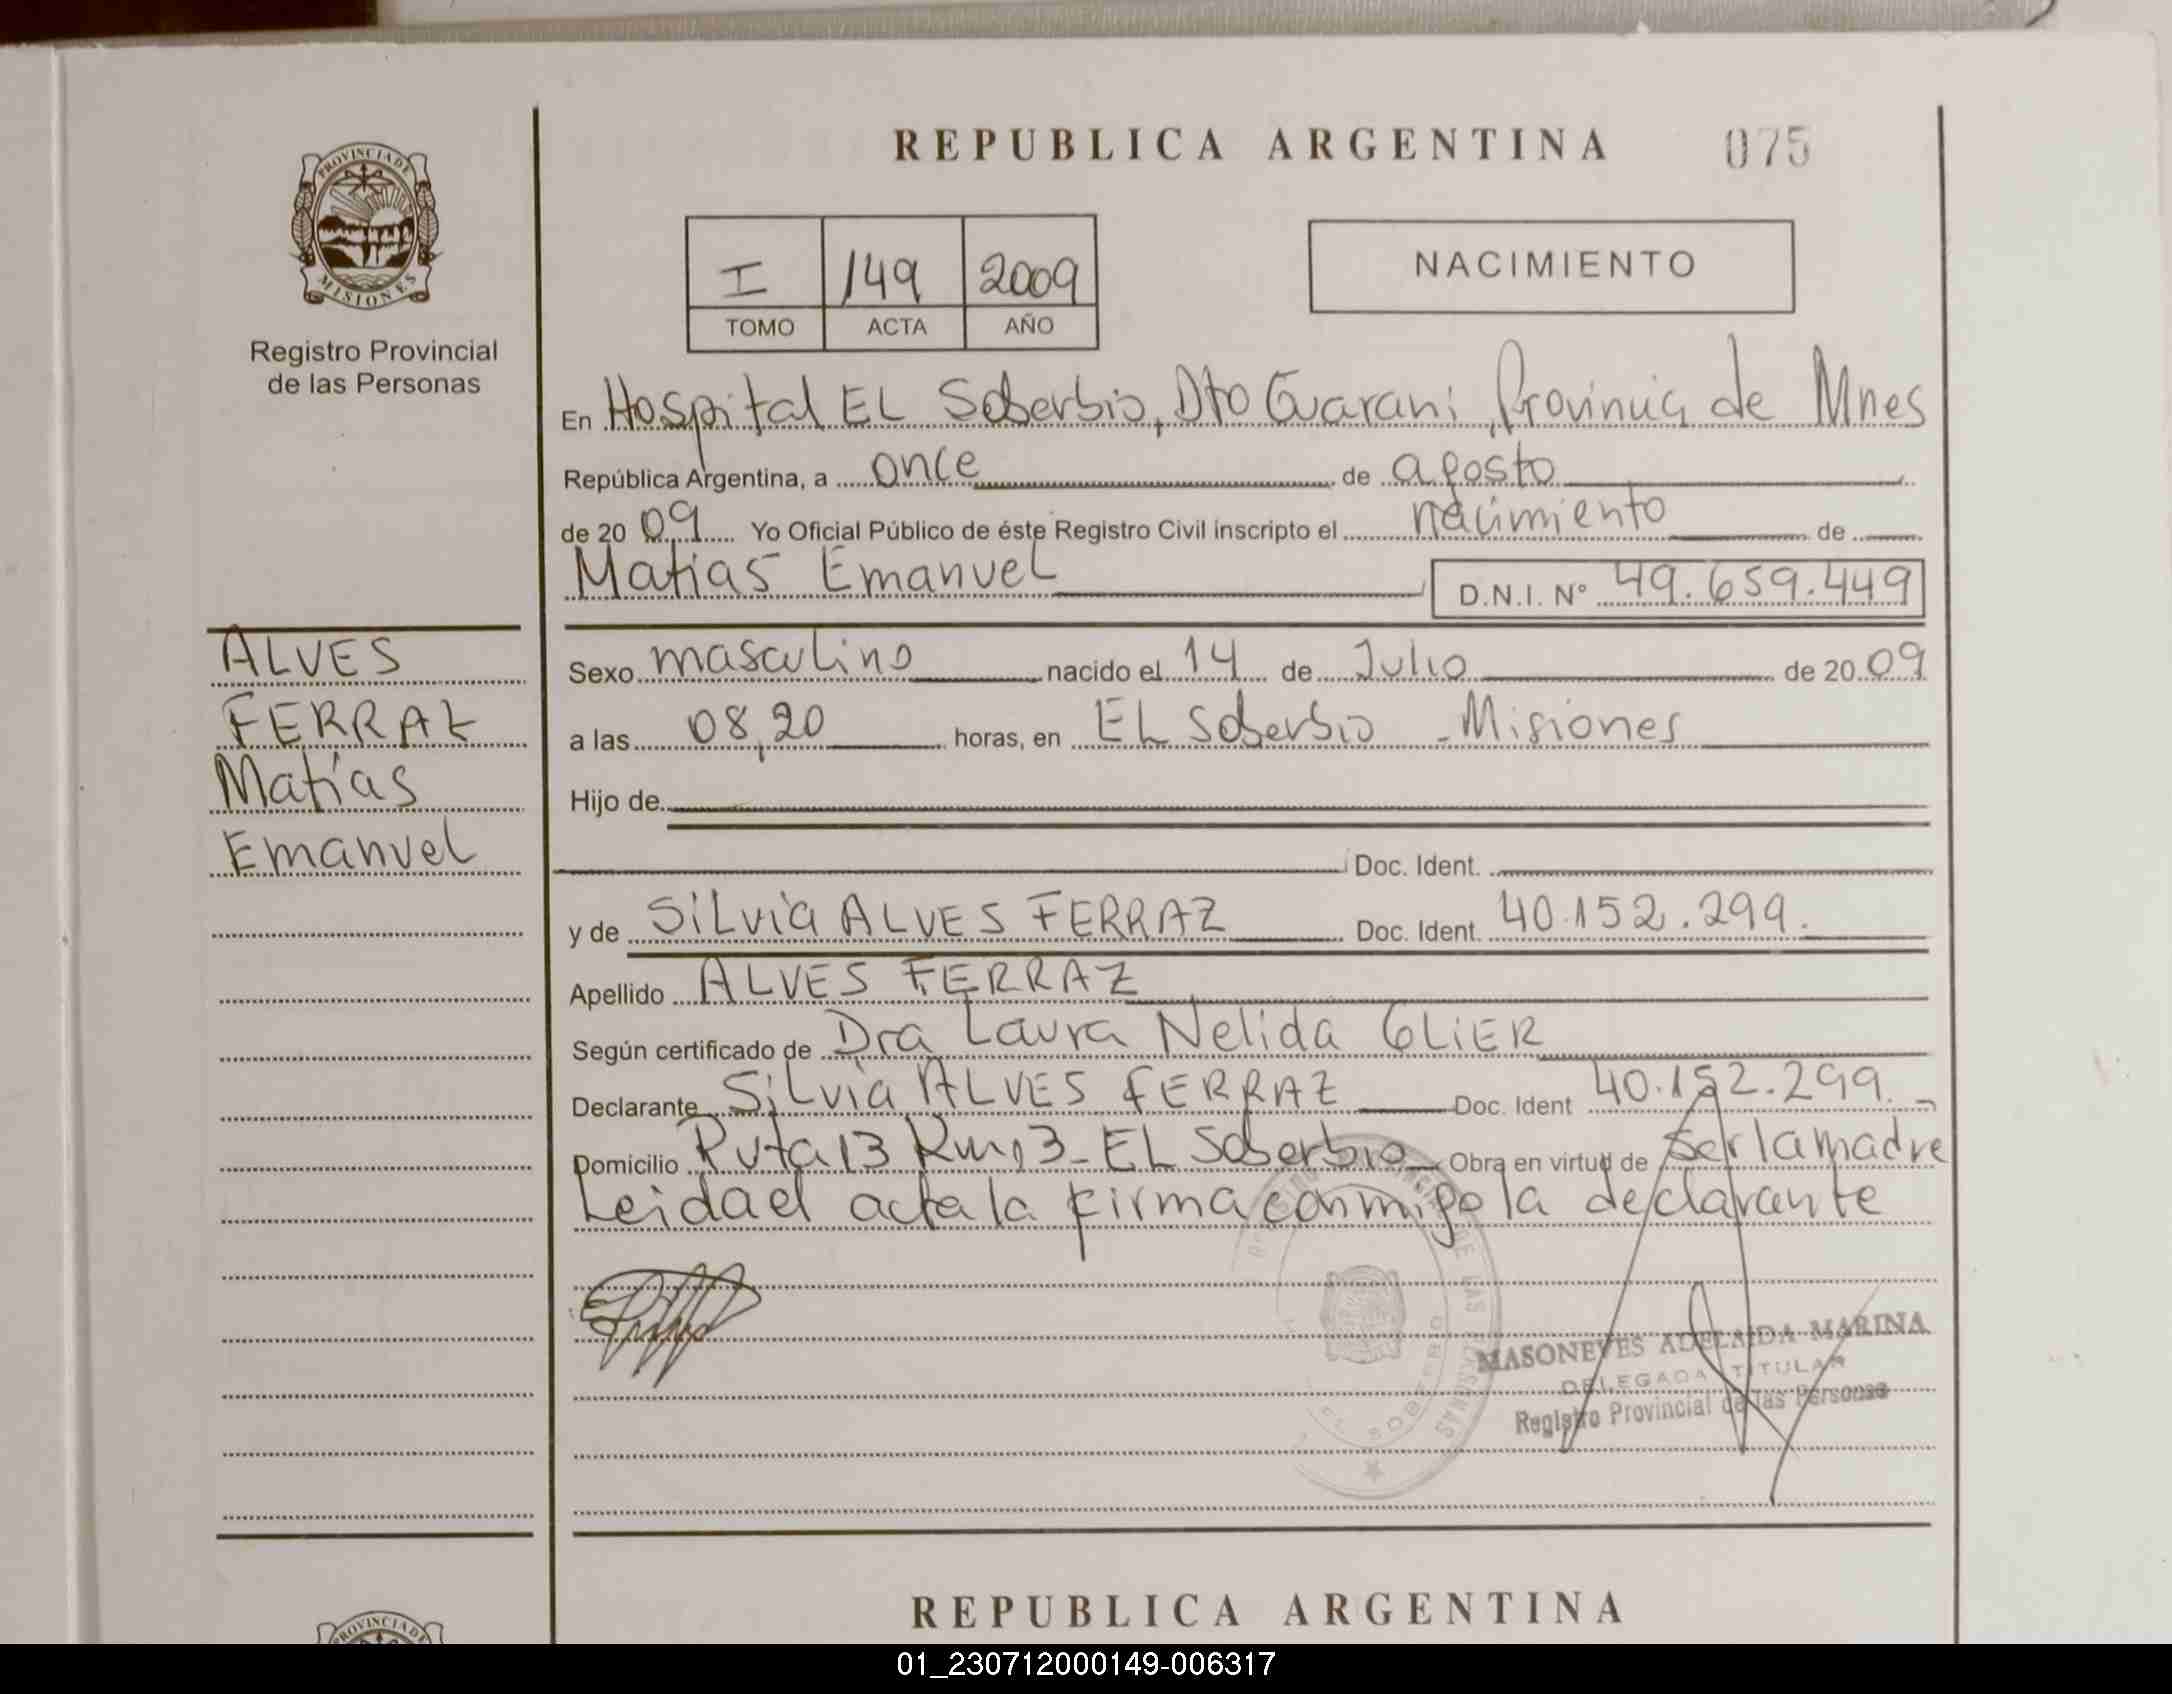 REPUBLICA ARGENTINA 075
PROVINCIA DE
MISIONES
Registro Provincial
de las Personas
I 149 2009
TOMO ACTA AÑO
NACIMIENTO
En Hospital EL Soberbio, Dto Guarani, Provincia de Mnes
República Argentina, a once de agosto
de 20 09 Yo Oficial Público de éste Registro Civil inscripto el nacimiento de
Matias Emanuel D.N.I. Nº 49.659.449
ALVES
FERRAZ
Matías
Emanuel
Sexo masculino nacido el 14 de Julio de 20 09
a las 08,20 horas, en EL Soberbio - Misiones
Hijo de
Doc. Ident.
y de Silvia ALVES FERRAZ Doc. Ident. 40.152.299.
Apellido ALVES FERRAZ
Según certificado de Dra Laura Nelida GLIER
Declarante Silvia ALVES FERRAZ Doc. Ident 40.152.299.
Domicilio Ruta 13 Km, 3 - EL Soberbio Obra en virtud de ser la madre
Leida el acta la firma conmigo la declarante
MASONEVES ADELAIDA MARINA
DELEGADA TITULAR
Registro Provincial de las Personas
REPUBLICA ARGENTINA
PROVINCIA DE
01_230712000149-006317